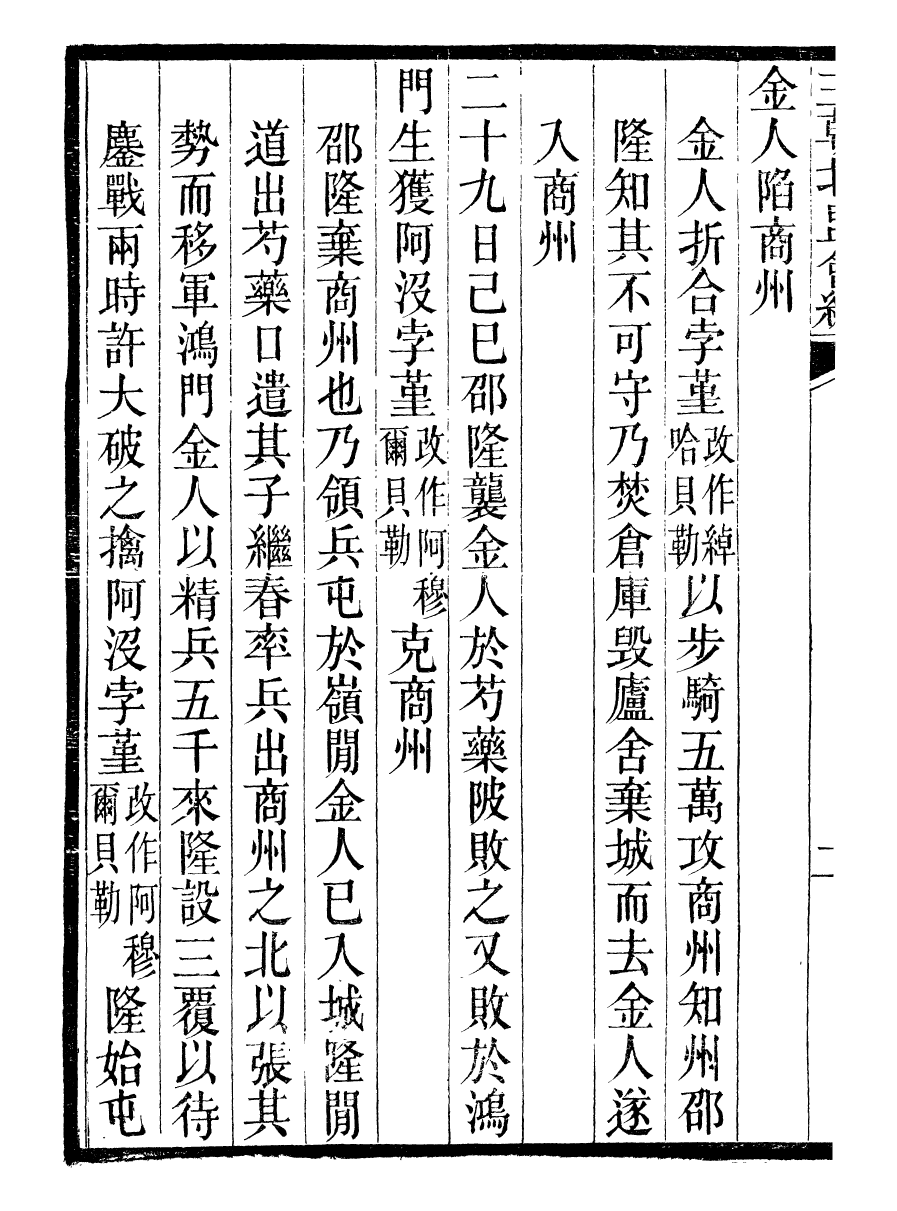 三朝北盟會編
二
金人陷商州
金人折合孛堇改作綽哈貝勒以步騎五萬攻商州知州邵
隆知其不可守乃焚倉庫毀廬舍棄城而去金人遂
入商州
二十九日己巳邵隆襲金人於芍藥陂敗之又敗於鴻
門生獲阿沒孛堇改作阿穆爾貝勒克商州
邵隆棄商州也乃領兵屯於嶺閒金人已入城隆閒
道出芍藥口遣其子繼春率兵出商州之北以張其
勢而移軍鴻門金人以精兵五千來隆設三覆以待
鏖戰兩時許大破之擒阿沒孛堇改作阿穆爾貝勒隆始屯